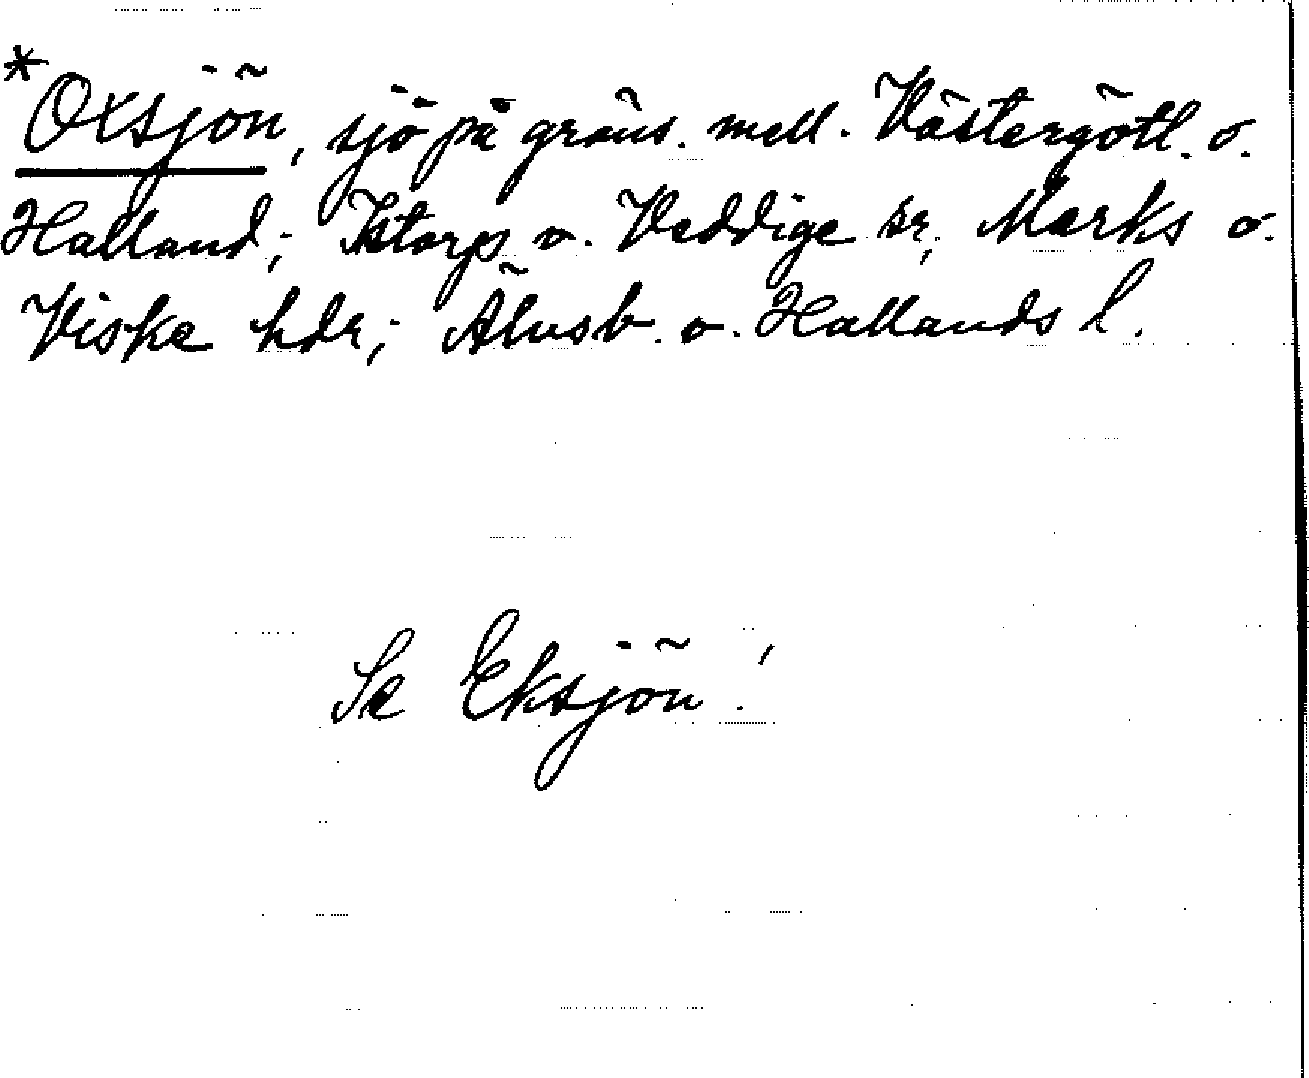 *Oxsjön, sjö på gräns. mell. Västergötl. o.
Halland; Istorps o. Veddige sr, Marks o.
Viske hdr; Älvsb. o. Hallands l.
Se Eksjön!